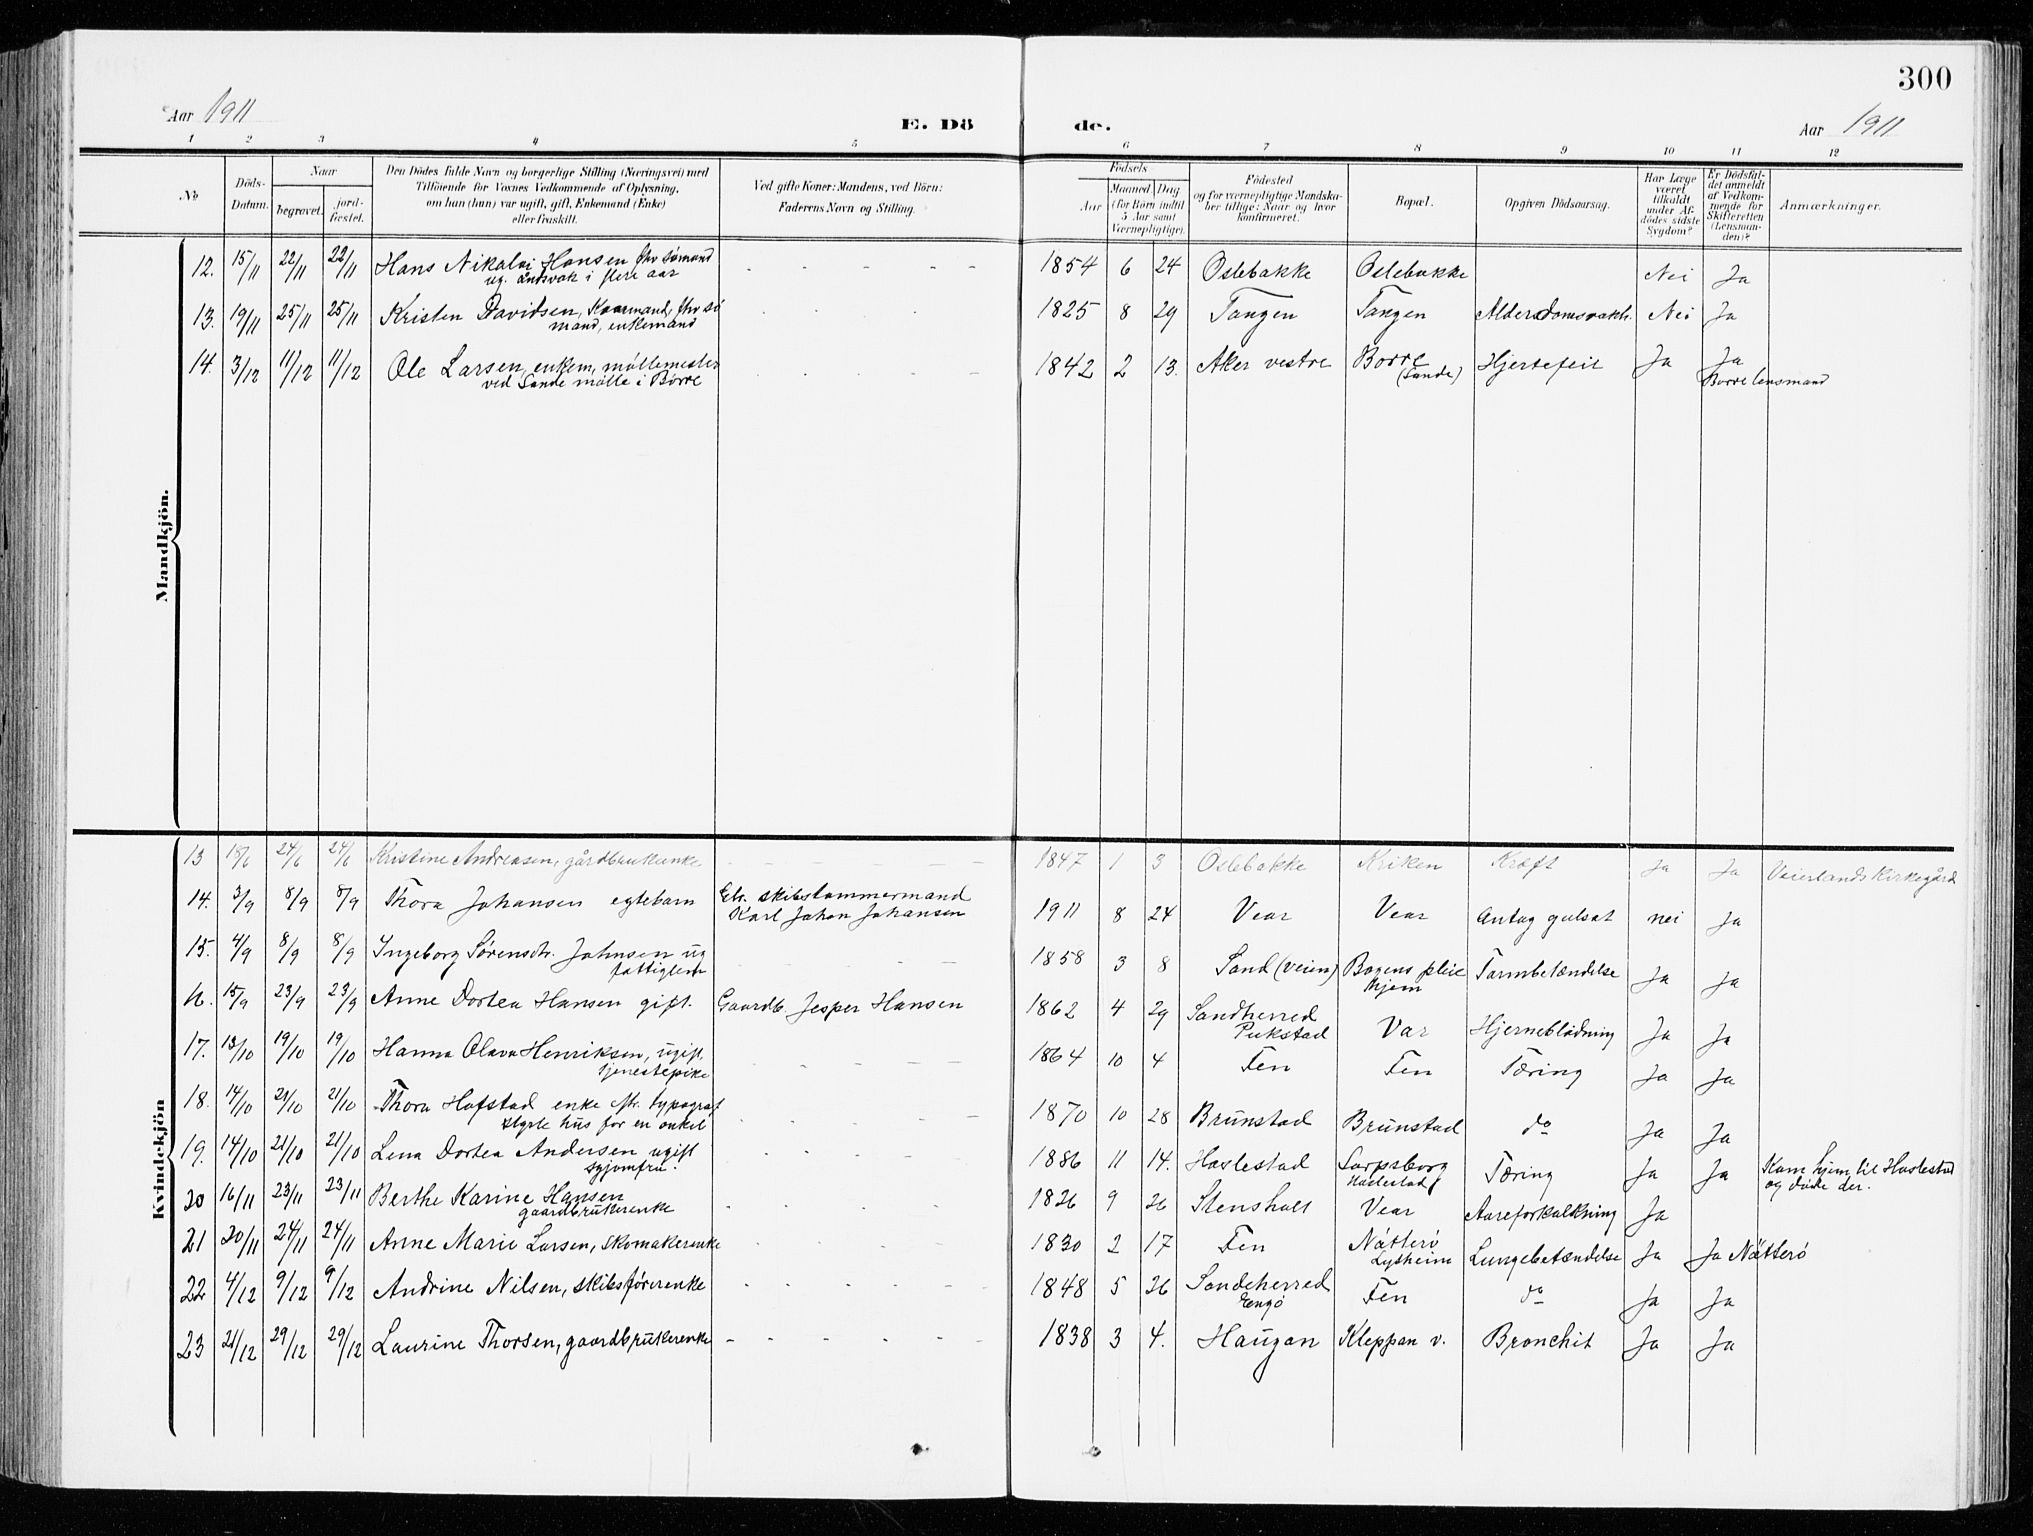 300
Aar 1911 E. Dö de. Aar 1911
1 2 3 4 5 6 7 8 9 10 11 12
No
Döds-Datum.
Naar
begravet.
jord-fæstet.
Den Dödes fulde Navn og borgerlige Stilling (Næringsvei) med
Tilföiende for Voxnes Vedkommende af Oplysning,
om han (hun) var ugift, gift, Enkemand (Enke)
eller fraskilt.
Ved gifte Koner: Mandens, ved Börn:
Faderens Navn og Stilling.
Födsels
Aar
Maaned Dag
(for Börn indtil
5 Aar samt
Værnepligtige).
Födested
og for værnepligtige Mandska-
ber tillige: Naar og hvor
konfirmeret.
Bopæl.
Opgiven Dödsaarsag.
Har Læge
været
tilkaldt
under Af-
dödes sidste
Sygdom?
Er Dödsfal-
det anmeldt
af Vedkom-
mende for
Skifteretten
(Lensman-
den)?
Anmærkninger.
Mandkjön.
12. 15/11 22/11 22/11 Hans Nikolai Hansen fhv sømand - - - - - 1854 6 24 Oslebakke Oslebakke Nei Ja
ug. åndsvak i flere aar
13. 19/11 25/11 25/11 Kristen Davidsen, Kaarmand, fhv sø 1825 8 29 Tangen Tangen Alderdomsvakh. Nei Ja
mand, enkemand
14. 3/12 11/12 11/12 Ole Larsen, enkem, møllemester 1842 2 13. Aker vestre Borre Hjertefeil Ja Ja
ved Sande mølle i Borre (Sande) Borre lensmand
Kvindekjön
13 18/6 24/6 24/6 Kristine Andreasen, gårdbrukerenke - - - - - 1847 1 3 Oslebakke Kriken Kræft Ja Ja Veierlands Kirkegård
14. 3/9 8/9 8/9 Thora Johansen egtebarn Efr. skibstømmermand
Karl Johan Johansen 1911 8 24 Vear Vear Antag gulsot nei Ja
15. 4/9 8/9 8/9 Ingeborg Sørensdr. Johnsen ug - - - - - 1858 3 8 Sand (veien) Bogens pleie Tarmbetændelse Ja Ja
fattiglem hjem
16. 15/9 23/9 23/9 Anne Dortea Hansen gift. Gaardb. Jesper Hansen 1862 4 29 Sandherred
Pukstad Var Hjerneblødning Ja Ja
17. 13/10 19/10 19/10 Hanna Olava Henriksen, ugift, 1864 10 4 Fen Fen Tæring Ja Ja
tjenestepike
18. 14/10 21/10 21/10 Thora Hofstad enke eftr. typograf 1870 10 28 Brunstad Brunstad do Ja Ja
styrte hus for en onkel
19. 14/10 21/10 21/10 Lena Dortea Andersen ugift 1886 11 14. Haslestad Sarpsborg Tæring Ja Ja Kom hjem til Haslestad
syjomfru. Haslestad og døde der.
20 16/11 23/11 23/11 Berthe Karine Hansen 1826 9 26 Stensholt Vear Aareforkalkning Ja
gaardbrukerenke
21 20/11 24/11 24/11 Anne Marie Larsen, skomakerenke 1830 2 17 Fen Nøtterø Lungebetændelse Ja Ja Nøtterø
Lysheim
22 4/12 9/12 9/12 Andrine Nilsen, skibsførerenke 1848 5 26 Sandeherred Fen do Ja Ja
Engø
23 21/12 29/12 29/12 Laurine Thorsen, gaardbrukerenke 1838 3 4. Haugan Kleppan v. Bronchit Ja Ja